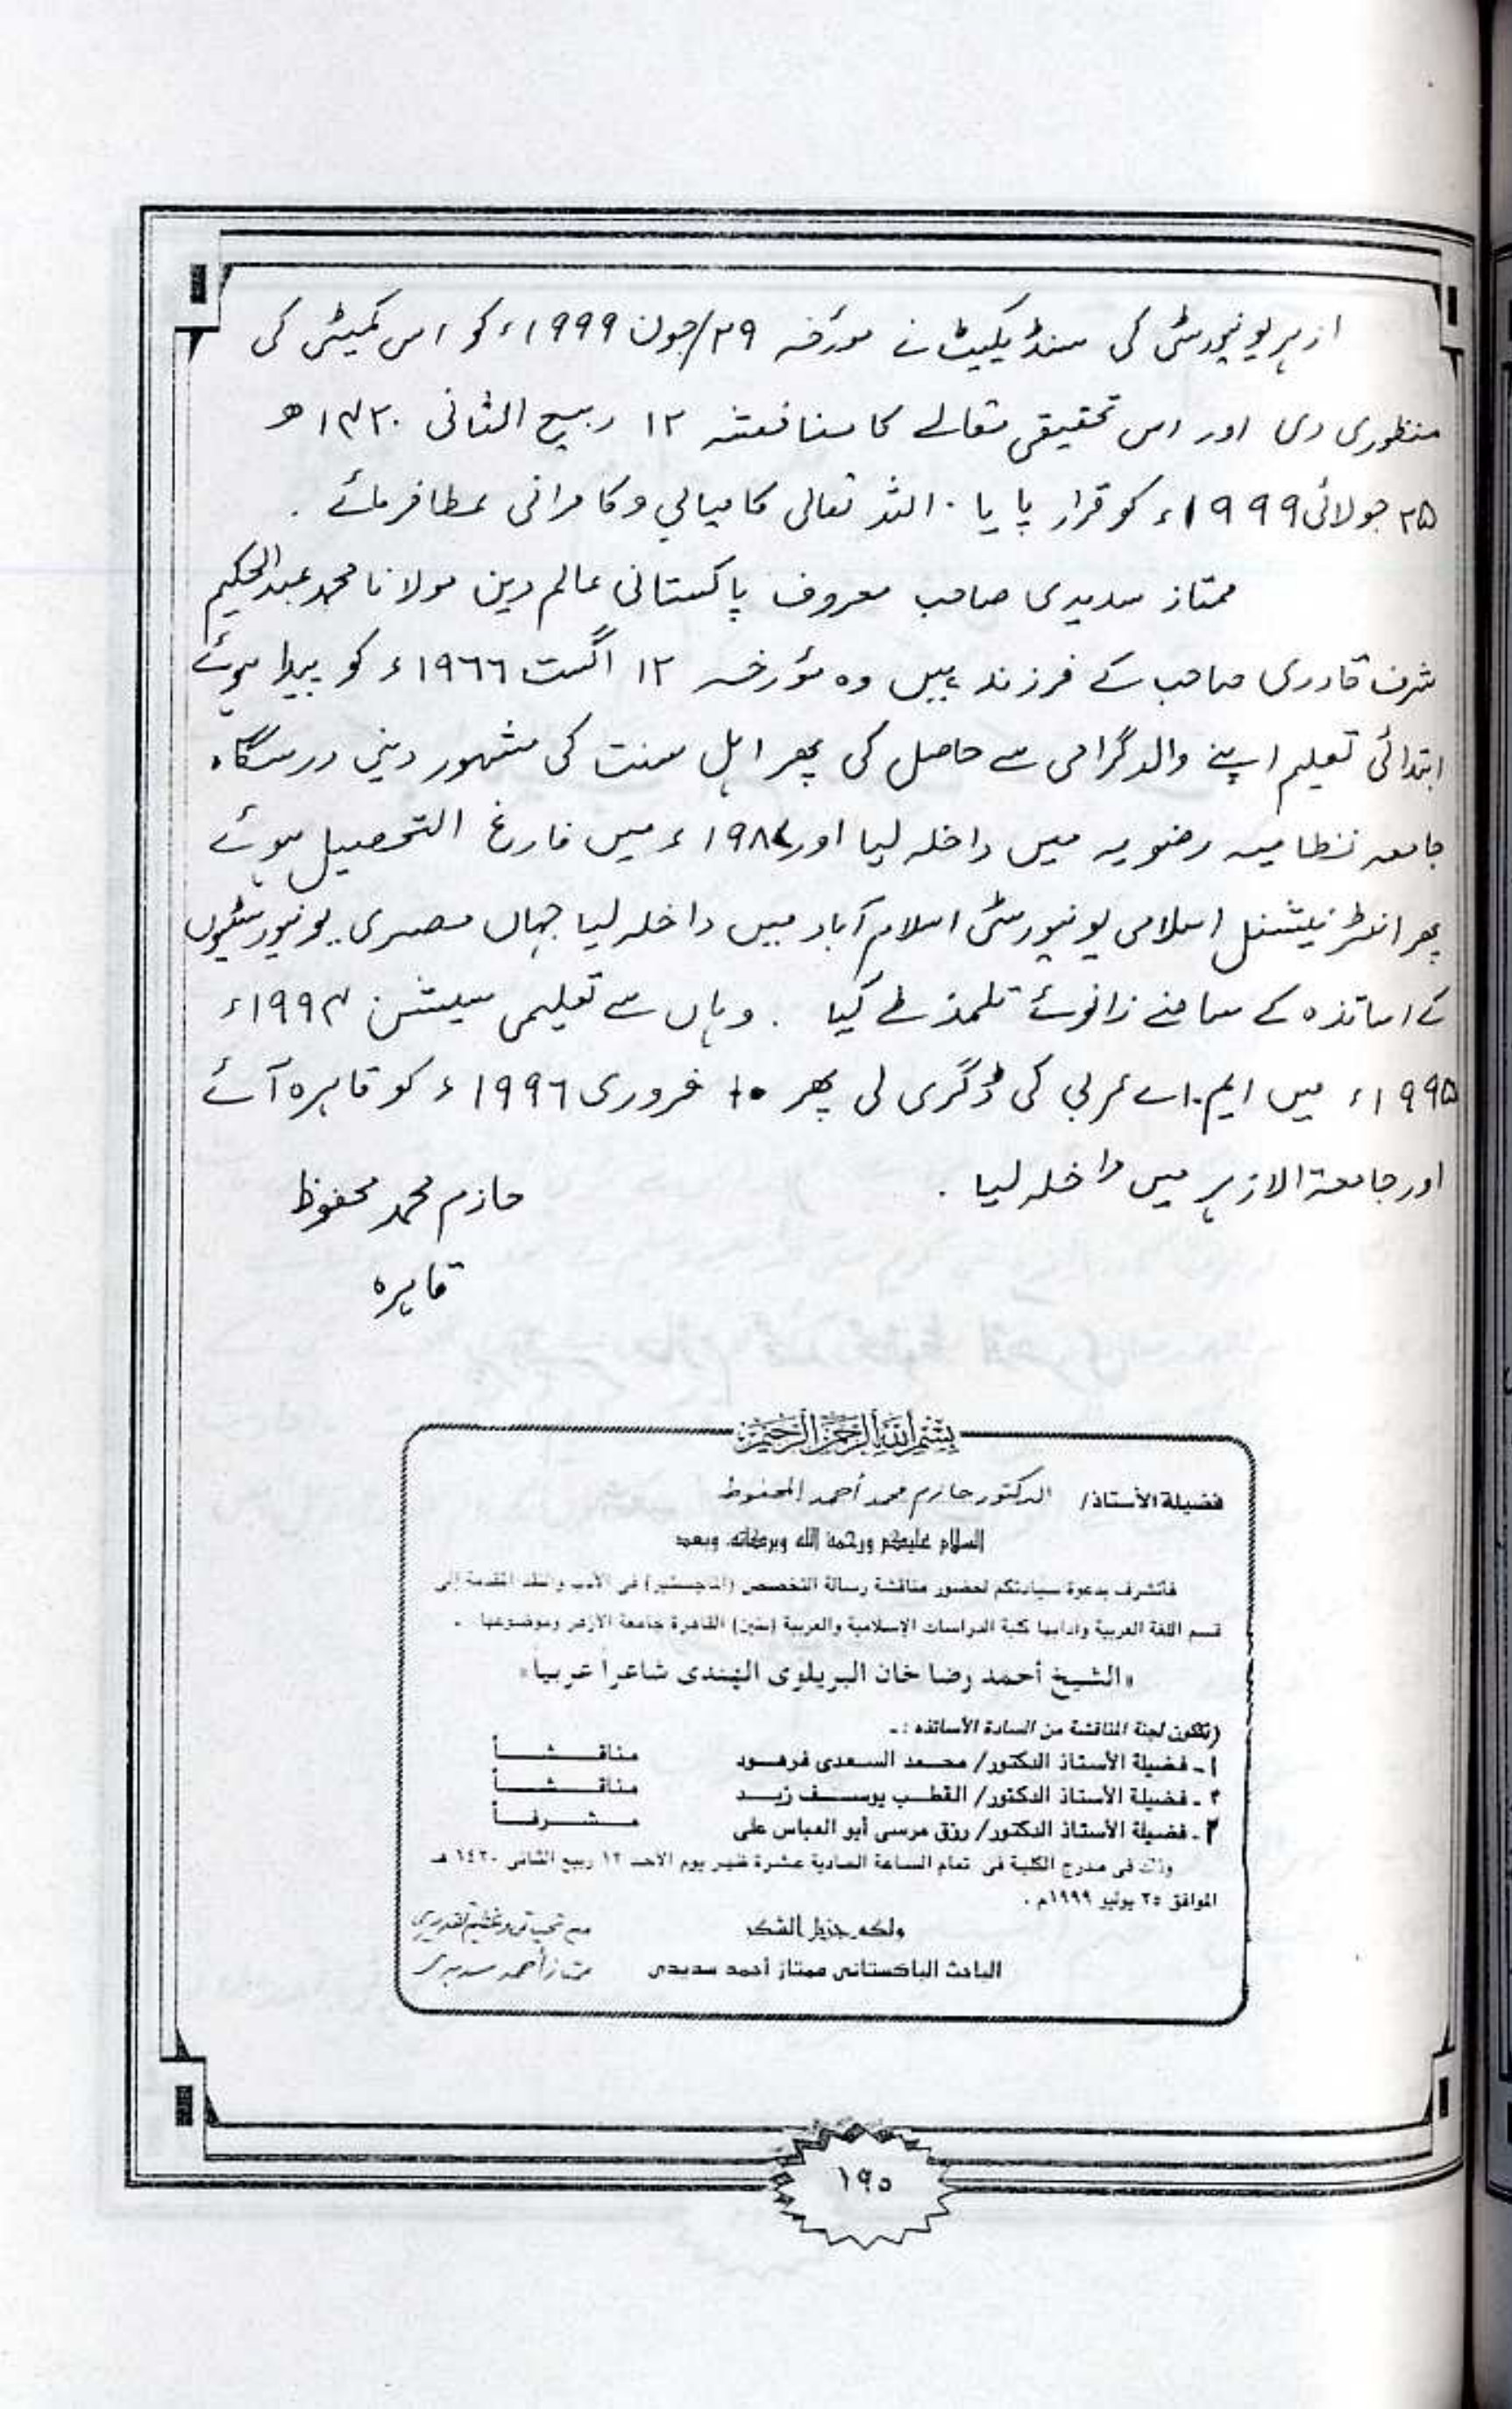 ازہر یونیورسٹی کی سنڈیکیٹ نے مورخہ ۲۹/جون ۱۹۹۹ء کو اس کمیٹی کی
منظوری دی اور اس تحقیقی مقالے کا مناقشہ ۱۲ ربیع الثانی ۱۴۲۰ھ
۲۵ جولائی ۱۹۹۹ء کو قرار پایا۔ اللہ تعالی کامیابی وکامرانی عطا فرمائے۔
ممتاز سدیدی صاحب معروف پاکستانی عالم دین مولانا محمد عبدالحکیم
شرف قادری صاحب کے فرزند ہیں وہ مؤرخہ ۱۲ اگست ۱۹۶۶ء کو پیدا ہوئے
ابتدائی تعلیم اپنے والد گرامی سے حاصل کی پھر اہل سنت کی مشہور دینی درسگاہ
جامعہ نظامیہ رضویہ میں داخلہ لیا اور ۱۹۸۷ء میں فارغ التحصیل ہوئے
پھر انٹرنیشنل اسلامی یونیورسٹی اسلام آباد میں داخلہ لیا جہاں مصری یونیورسٹیوں
کے اساتذہ کے سامنے زانوئے تلمذ طے کیا۔ وہاں سے تعلیمی سیشن ۱۹۹۴ء
۱۹۹۵ء میں ایم۔اے عربی کی ڈگری لی پھر فروری ۱۹۹۶ء کو قاہرہ آئے
اور جامعۃ الازہر میں داخلہ لیا۔
حازم محمد محفوظ
قاہرہ
بسم الله الرحمن الرحيم
فضيلة الأستاذ/ الدكتور حازم محمد أحمد المحفوظ
السلام عليكم ورحمة الله وبركاته وبعد
فأتشرف بدعوة سيادتكم لحضور مناقشة رسالة التخصص (الماجستير) فى الأدب والنقد المقدمة إلى
قسم اللغة العربية وآدابها كلية الدراسات الإسلامية والعربية (بنين) القاهرة جامعة الأزهر وموضوعها -
«الشيخ أحمد رضا خان البريلوى الهندى شاعراً عربياً»
(تتكون لجنة المناقشة من السادة الأساتذه :-
١- فضيلة الأستاذ الدكتور/ محمد السعدى فرهود مناقشاً
٢- فضيلة الأستاذ الدكتور/ القطب يوسف زيد مناقشاً
٣- فضيلة الأستاذ الدكتور/ رزق مرسى أبو العباس على مشرفاً
وذلك فى مدرج الكلية فى تمام الساعة الحادية عشرة ظهر يوم الأحد ١٢ ربيع الثانى ١٤٢٠ هـ
الموافق ٢٥ يوليو ١٩٩٩م .
ولكم جزيل الشكر مع تحياتى وعظيم تقديرى
الباحث الباكستانى ممتاز أحمد سديدى ممتاز أحمد سديدى
۱۹۵